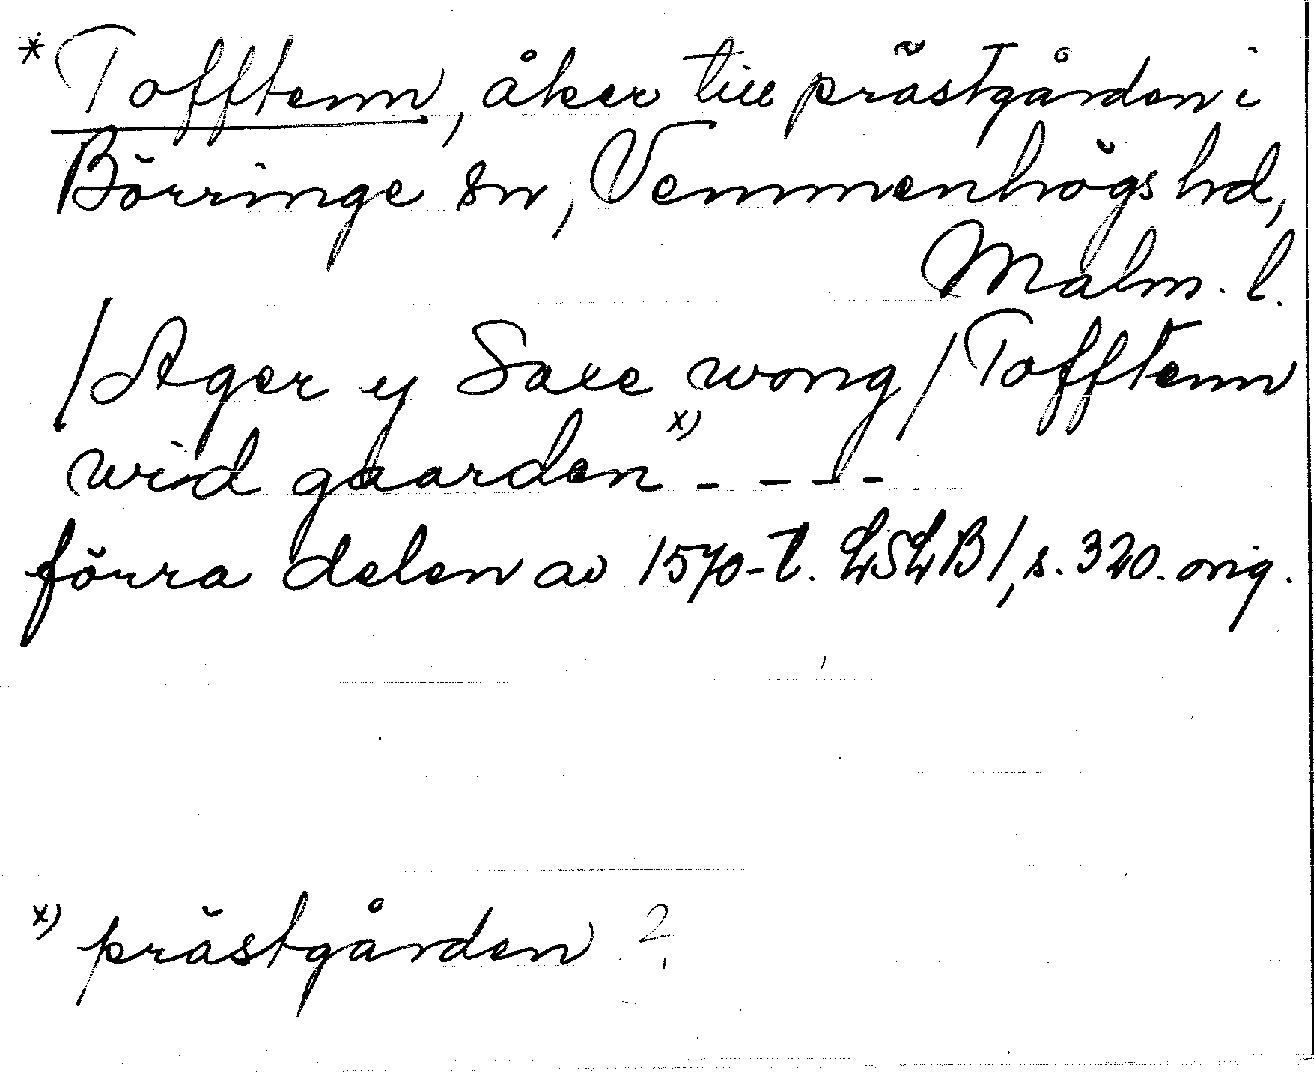 * Tofftenn, åker till prästgården i
Börringe sn, Vemmenhögs hd,
Malm. l.
/Ager y Saxe wong/ Tofftenn
wid gaarden x) - - - -
förra delen av 1570-t. LSLB1, s. 320. orig.
x) prästgården ?